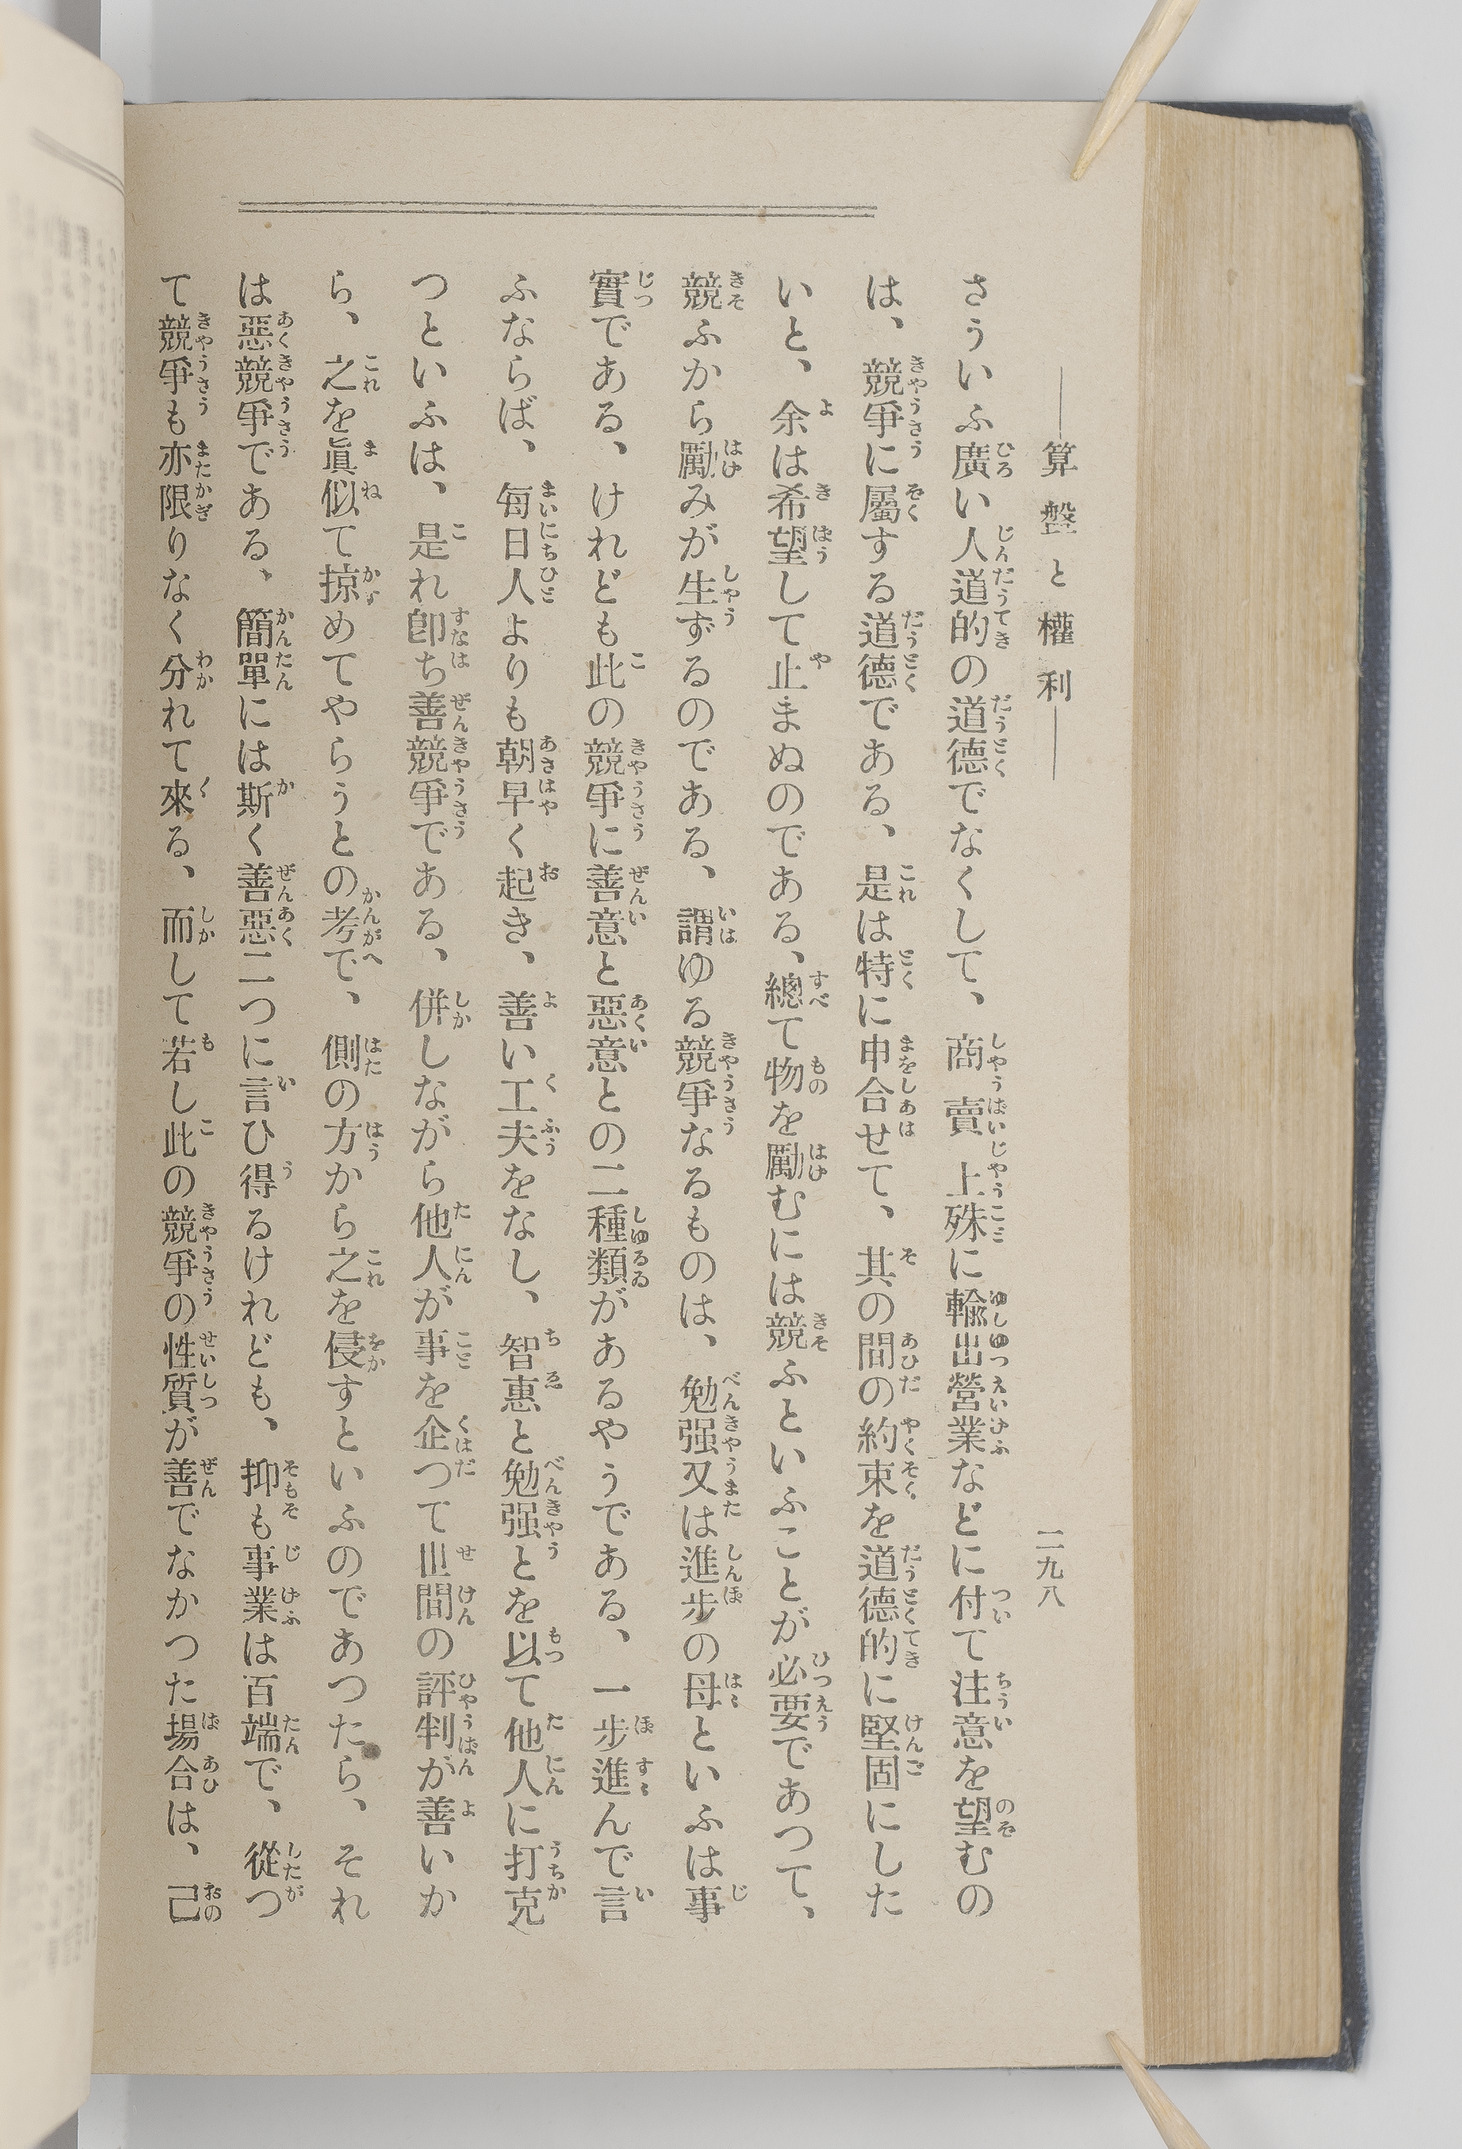 ――算盤と權利――　二九八
さういふ廣い人道的の道德でなくして、商賣上殊に輸出營業などに付て注意を望むの
は、競爭に屬する道德である、是は特に申合せて、其の間の約束を道德的に堅固にした
いと、余は希望して止まぬのである、總て物を勵むには競ふといふことが必要であつて、
競ふから勵みが生ずるのである、謂ゆる競爭なるものは、勉强又は進步の母といふは事
實である、けれども此の競爭に善意と惡意との二種類があるやうである、一步進んで言
ふならば、每日人よりも朝早く起き、善い工夫をなし、智惠と勉强とを以て他人に打克
つといふは、是れ卽ち善競爭である、併しながら他人が事を企つて世間の評判が善いか
ら、之を眞似て掠めてやらうとの考で、側の方から之を侵すといふのであつたら、それ
は惡競爭である、簡單には斯く善惡二つに言ひ得るけれども、抑も事業は百端で、從つ
て競爭も亦限りなく分れて來る、而して若し此の競爭の性質が善でなかつた場合は、己